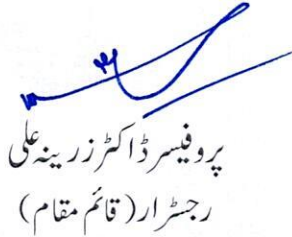 پروفیسر ڈاکٹر زرینہ علی
رجسٹرار (قائم مقام)